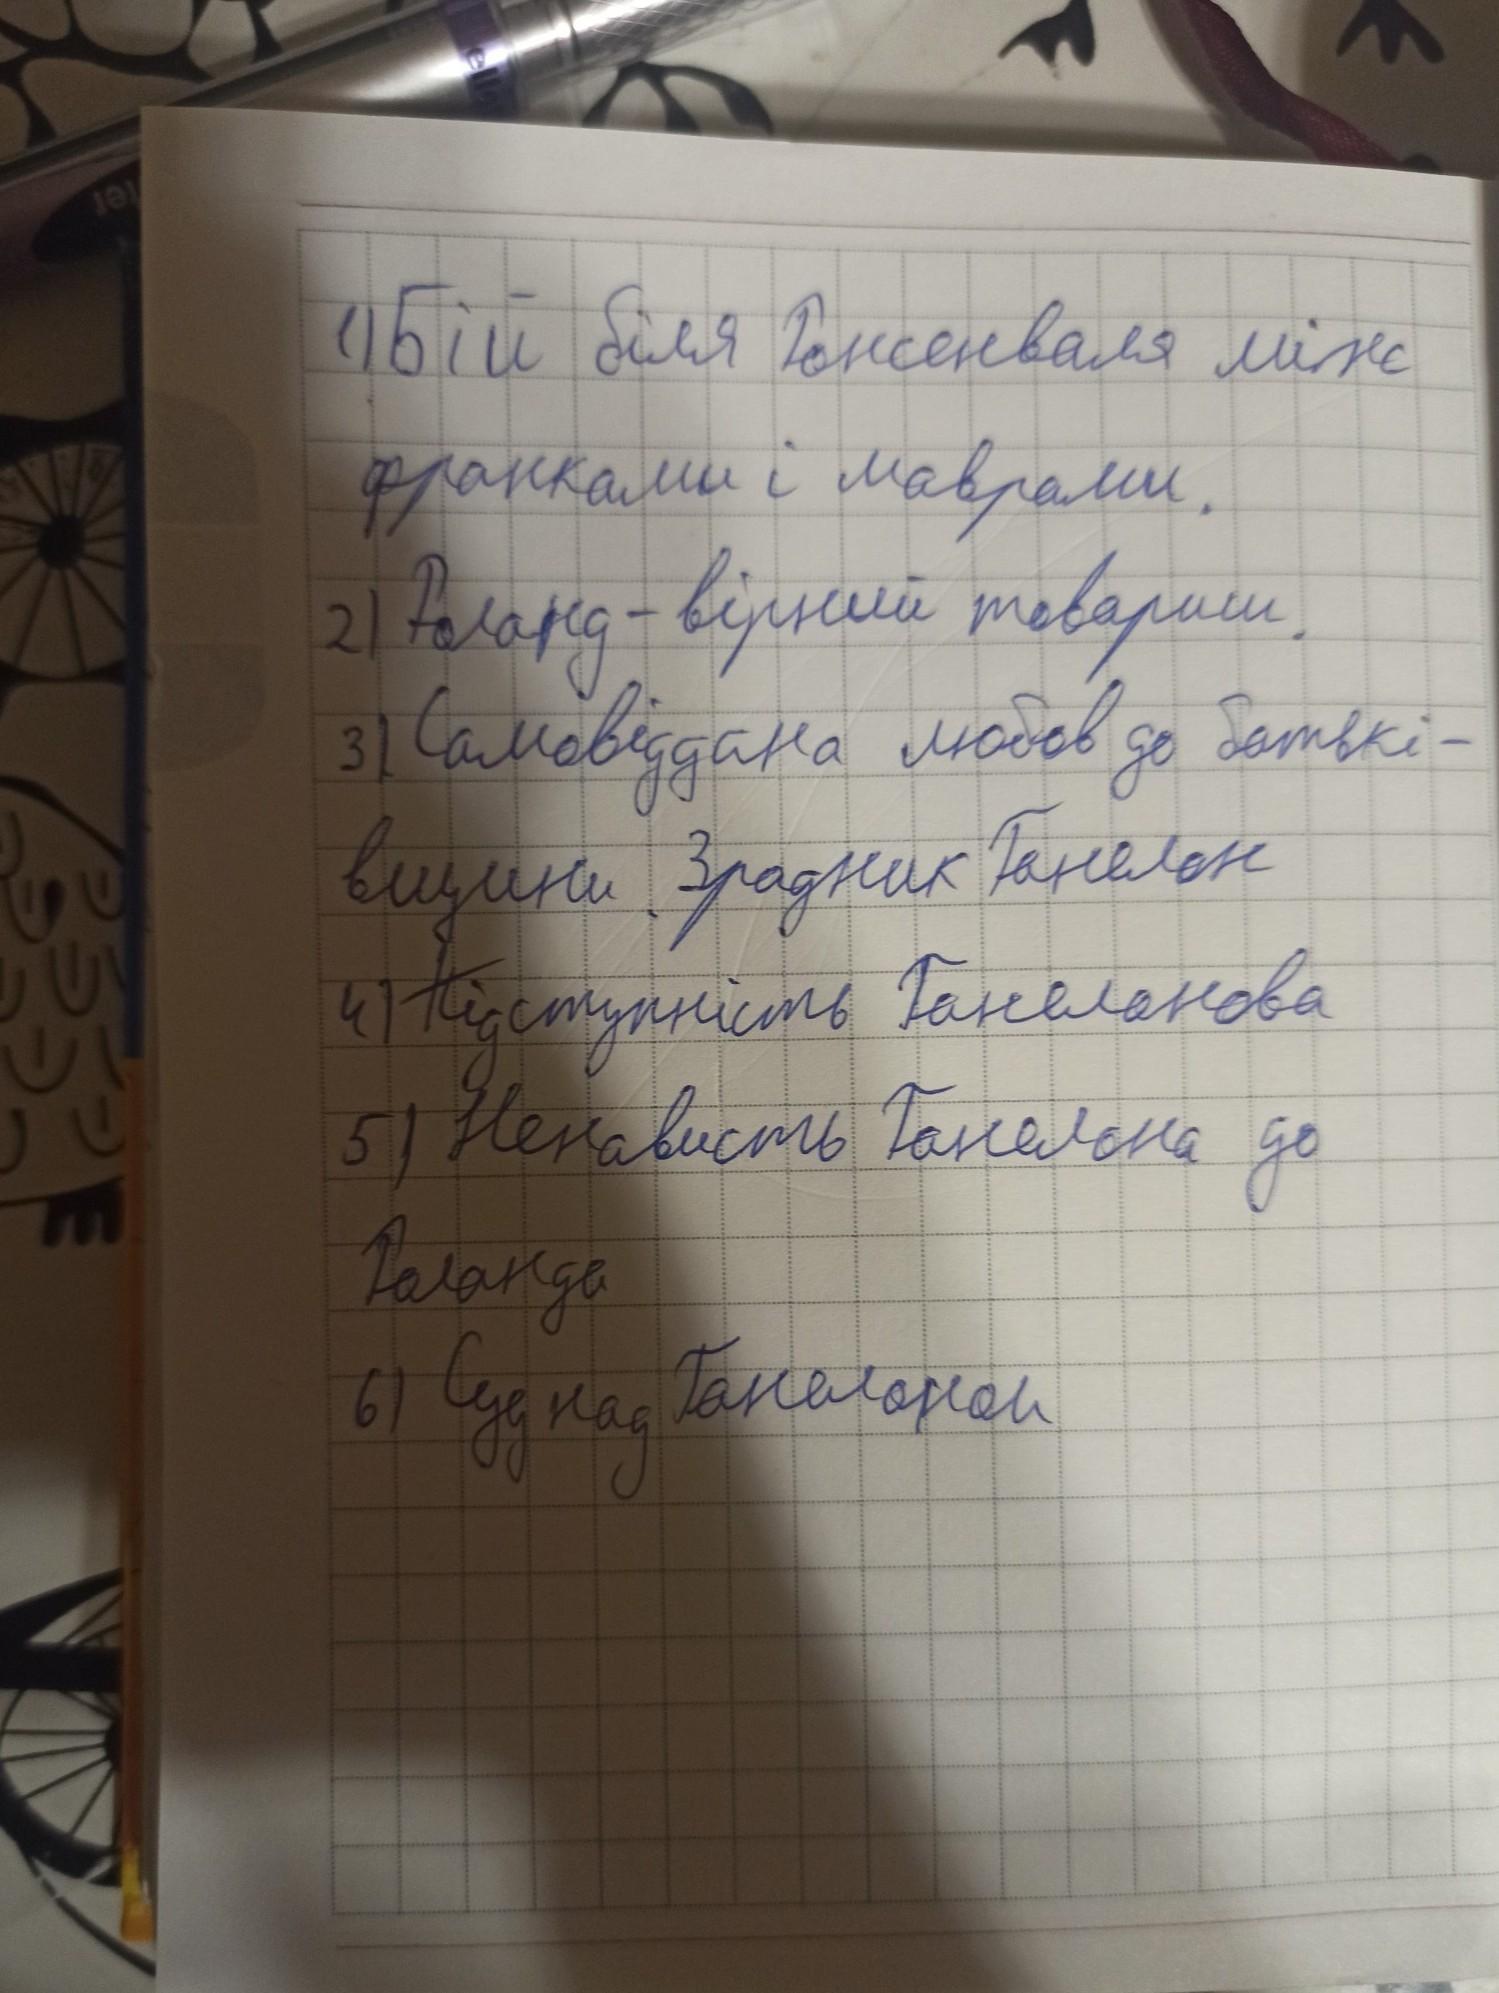 ello
1) Бій біля Ронсенваля між
франками і маврами.
2) Роланд - вірний товариш.
3) Самовіддана любов до батькі-
вщини. Зрадник Ганелон
4) Підступність Ганелонова
5) Ненависть Ганелона до
Роланда
6) Суд над Ганелоном